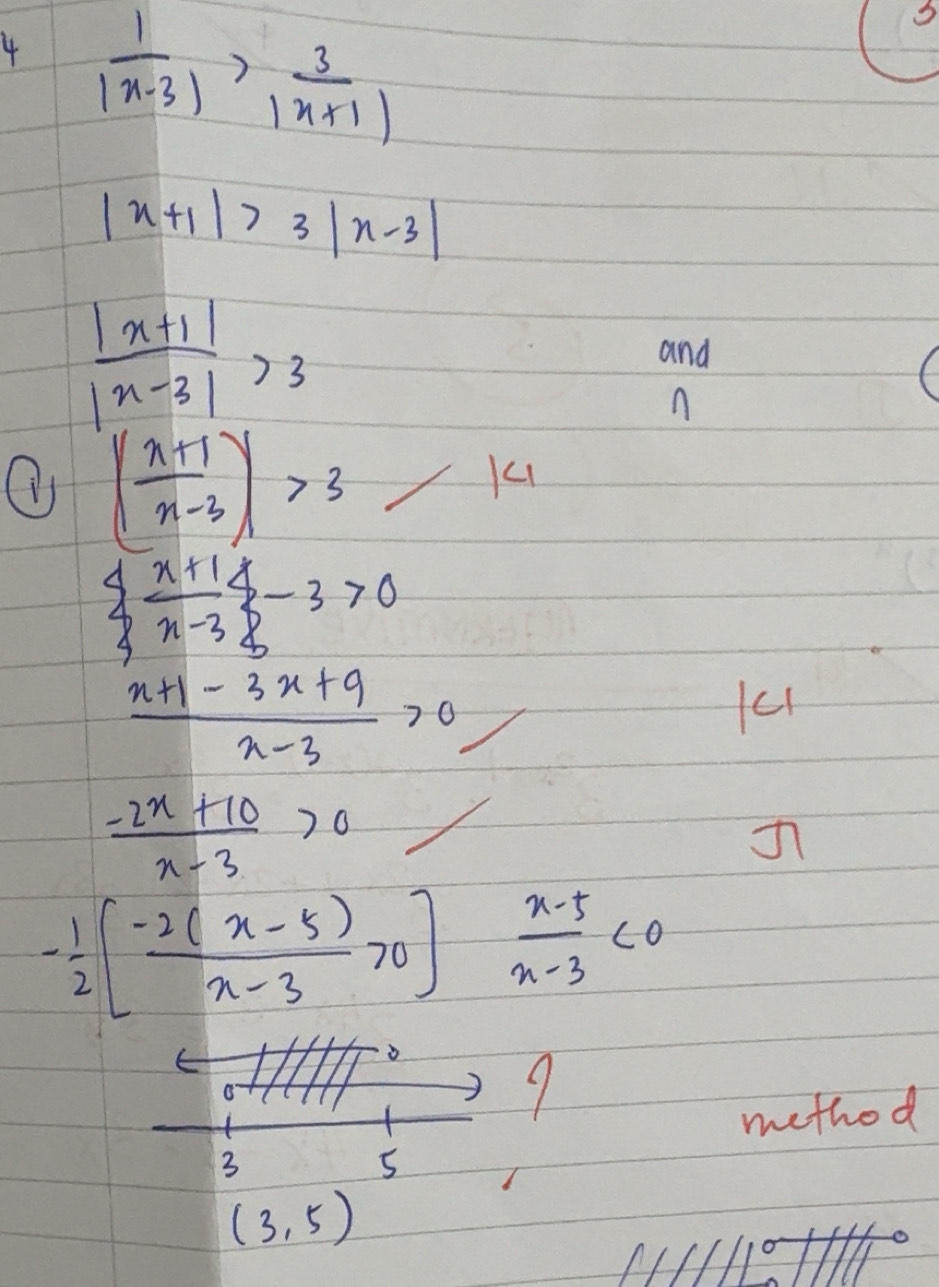 4 1/|x-3| > 3/|x+1|
|x+1| > 3|x-3|
|x+1|/|x-3| > 3 and
∩
① |(x+1)/(x-3)| > 3 K1
(x+1)/(x-3) - 3 > 0
(x+1-3x+9)/(x-3) > 0 K1
(-2x+10)/(x-3) > 0 J1
-1/2 [-2(x-5)/(x-3) > 0] (x-5)/(x-3) < 0
?
method
3 5
(3,5)